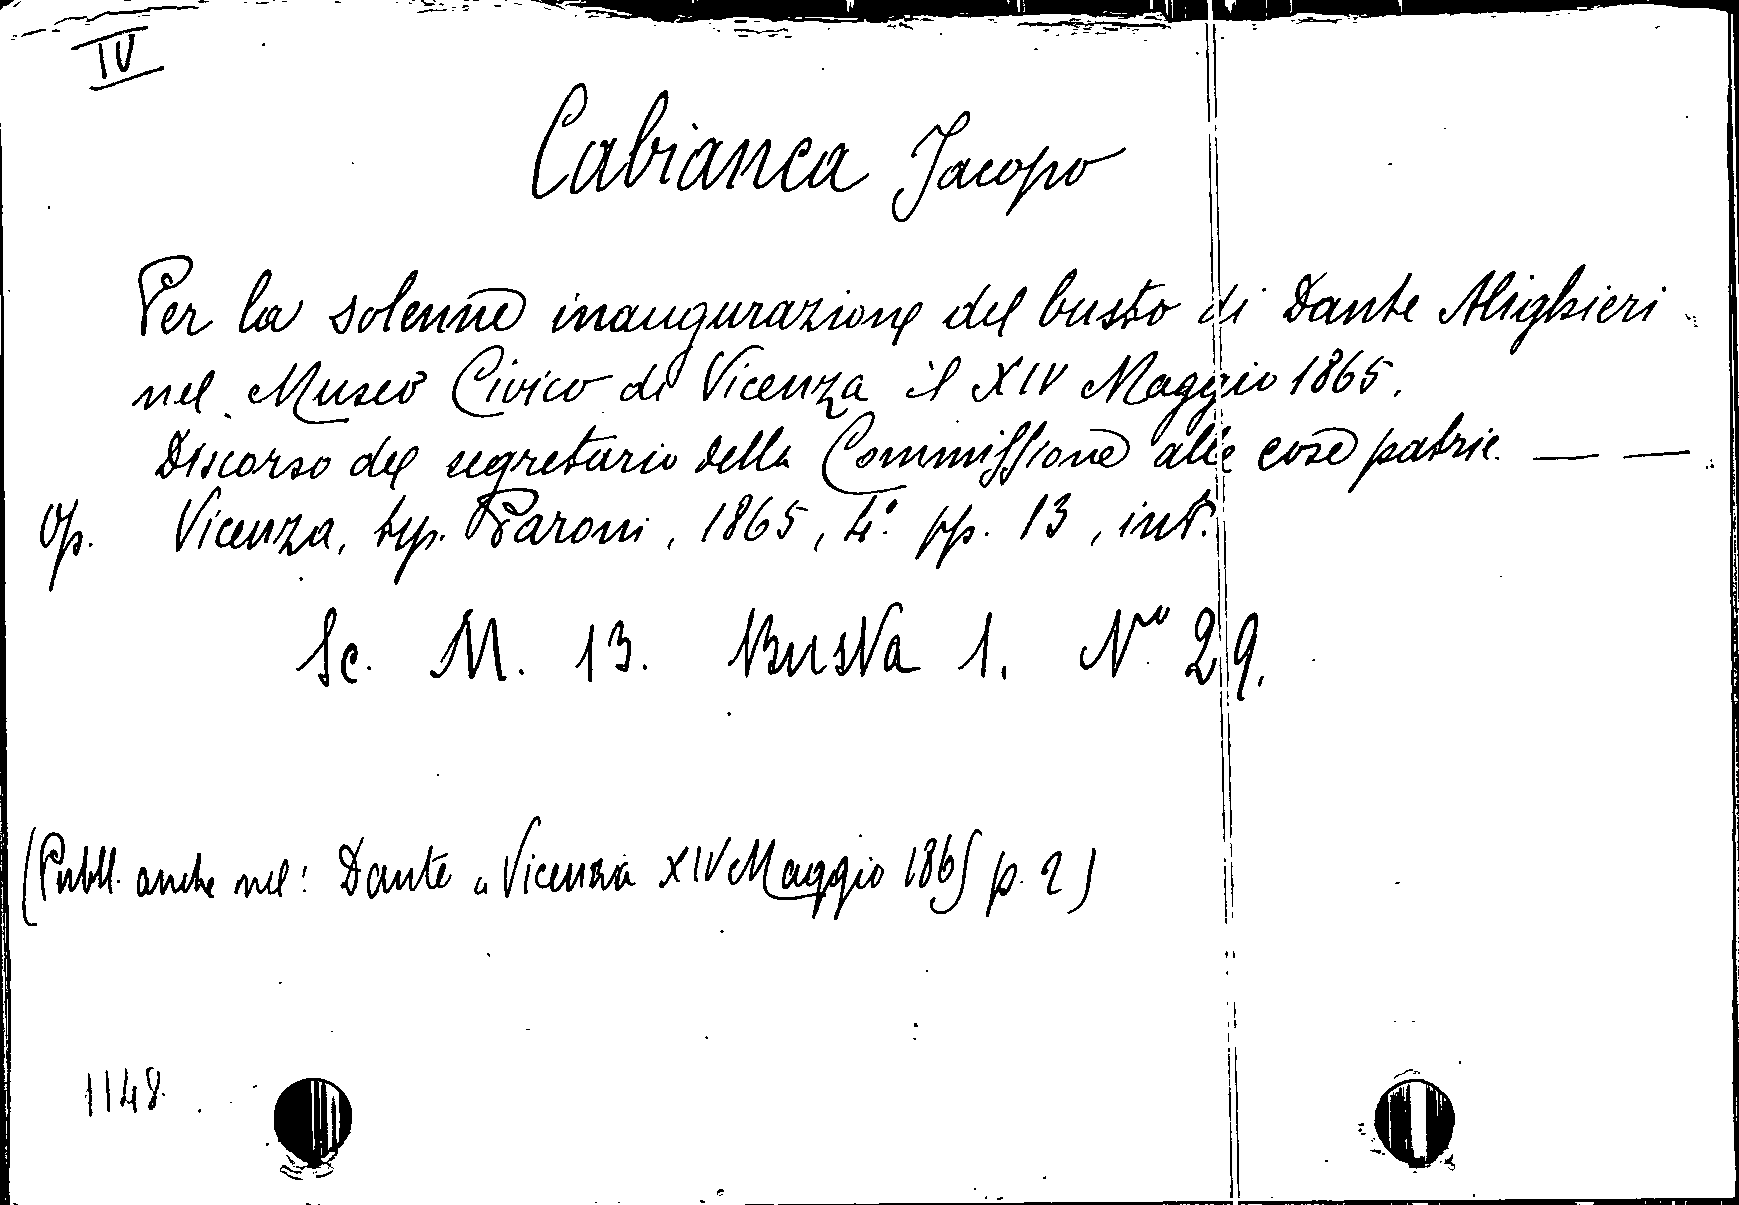 IV
Cabianca Jacopo
Per la solenne inaugurazione del busto di Dante Alighieri
nel Museo Civico di Vicenza il XIV Maggio 1865.
Discorso del segretario della Commissione alle cose patrie. — —
Op. Vicenza, typ. Paroni, 1865, 4.° pp. 13, int.
Sc. M. 13. Busta 1. N.° 29.
(Pubbl. anche nel: Dante a Vicenza XIV Maggio 1865 p. 2)
1148.